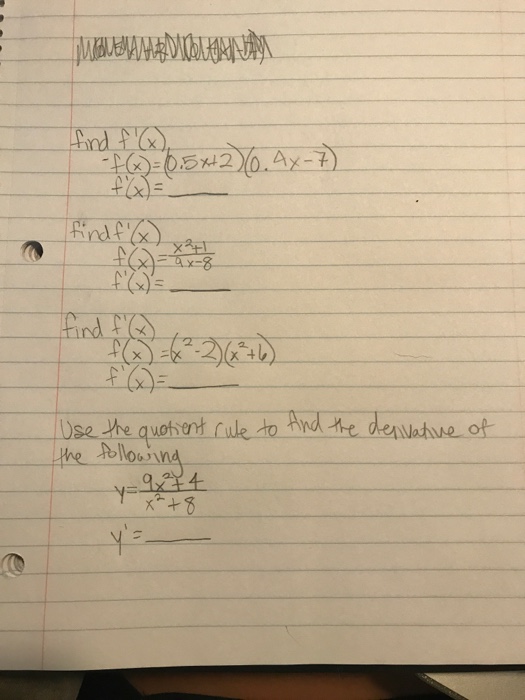 find f'(x)
f(x)=(0.5x+2)(0.4x-7)
f'(x)=
find f'(x)
f(x)= x²+1 / 9x-8
f'(x)=
find f'(x)
f(x)=(x²-2)(x²+6)
f'(x)=
Use the quotient rule to find the derivative of
the following
y= 9x²+4 / x²+8
y'=